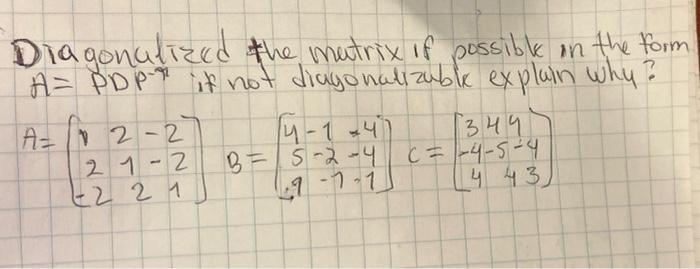 Diagonalized the matrix if possible in the form
A = PDP⁻¹ if not diagonalizable explain why?
A = [1 2 -2
2 1 -2
-2 2 1]
B = [4 -1 -4
5 -2 -4
-1 -1]
C = [3 4 4
-4 -5 -4
4 4 3]